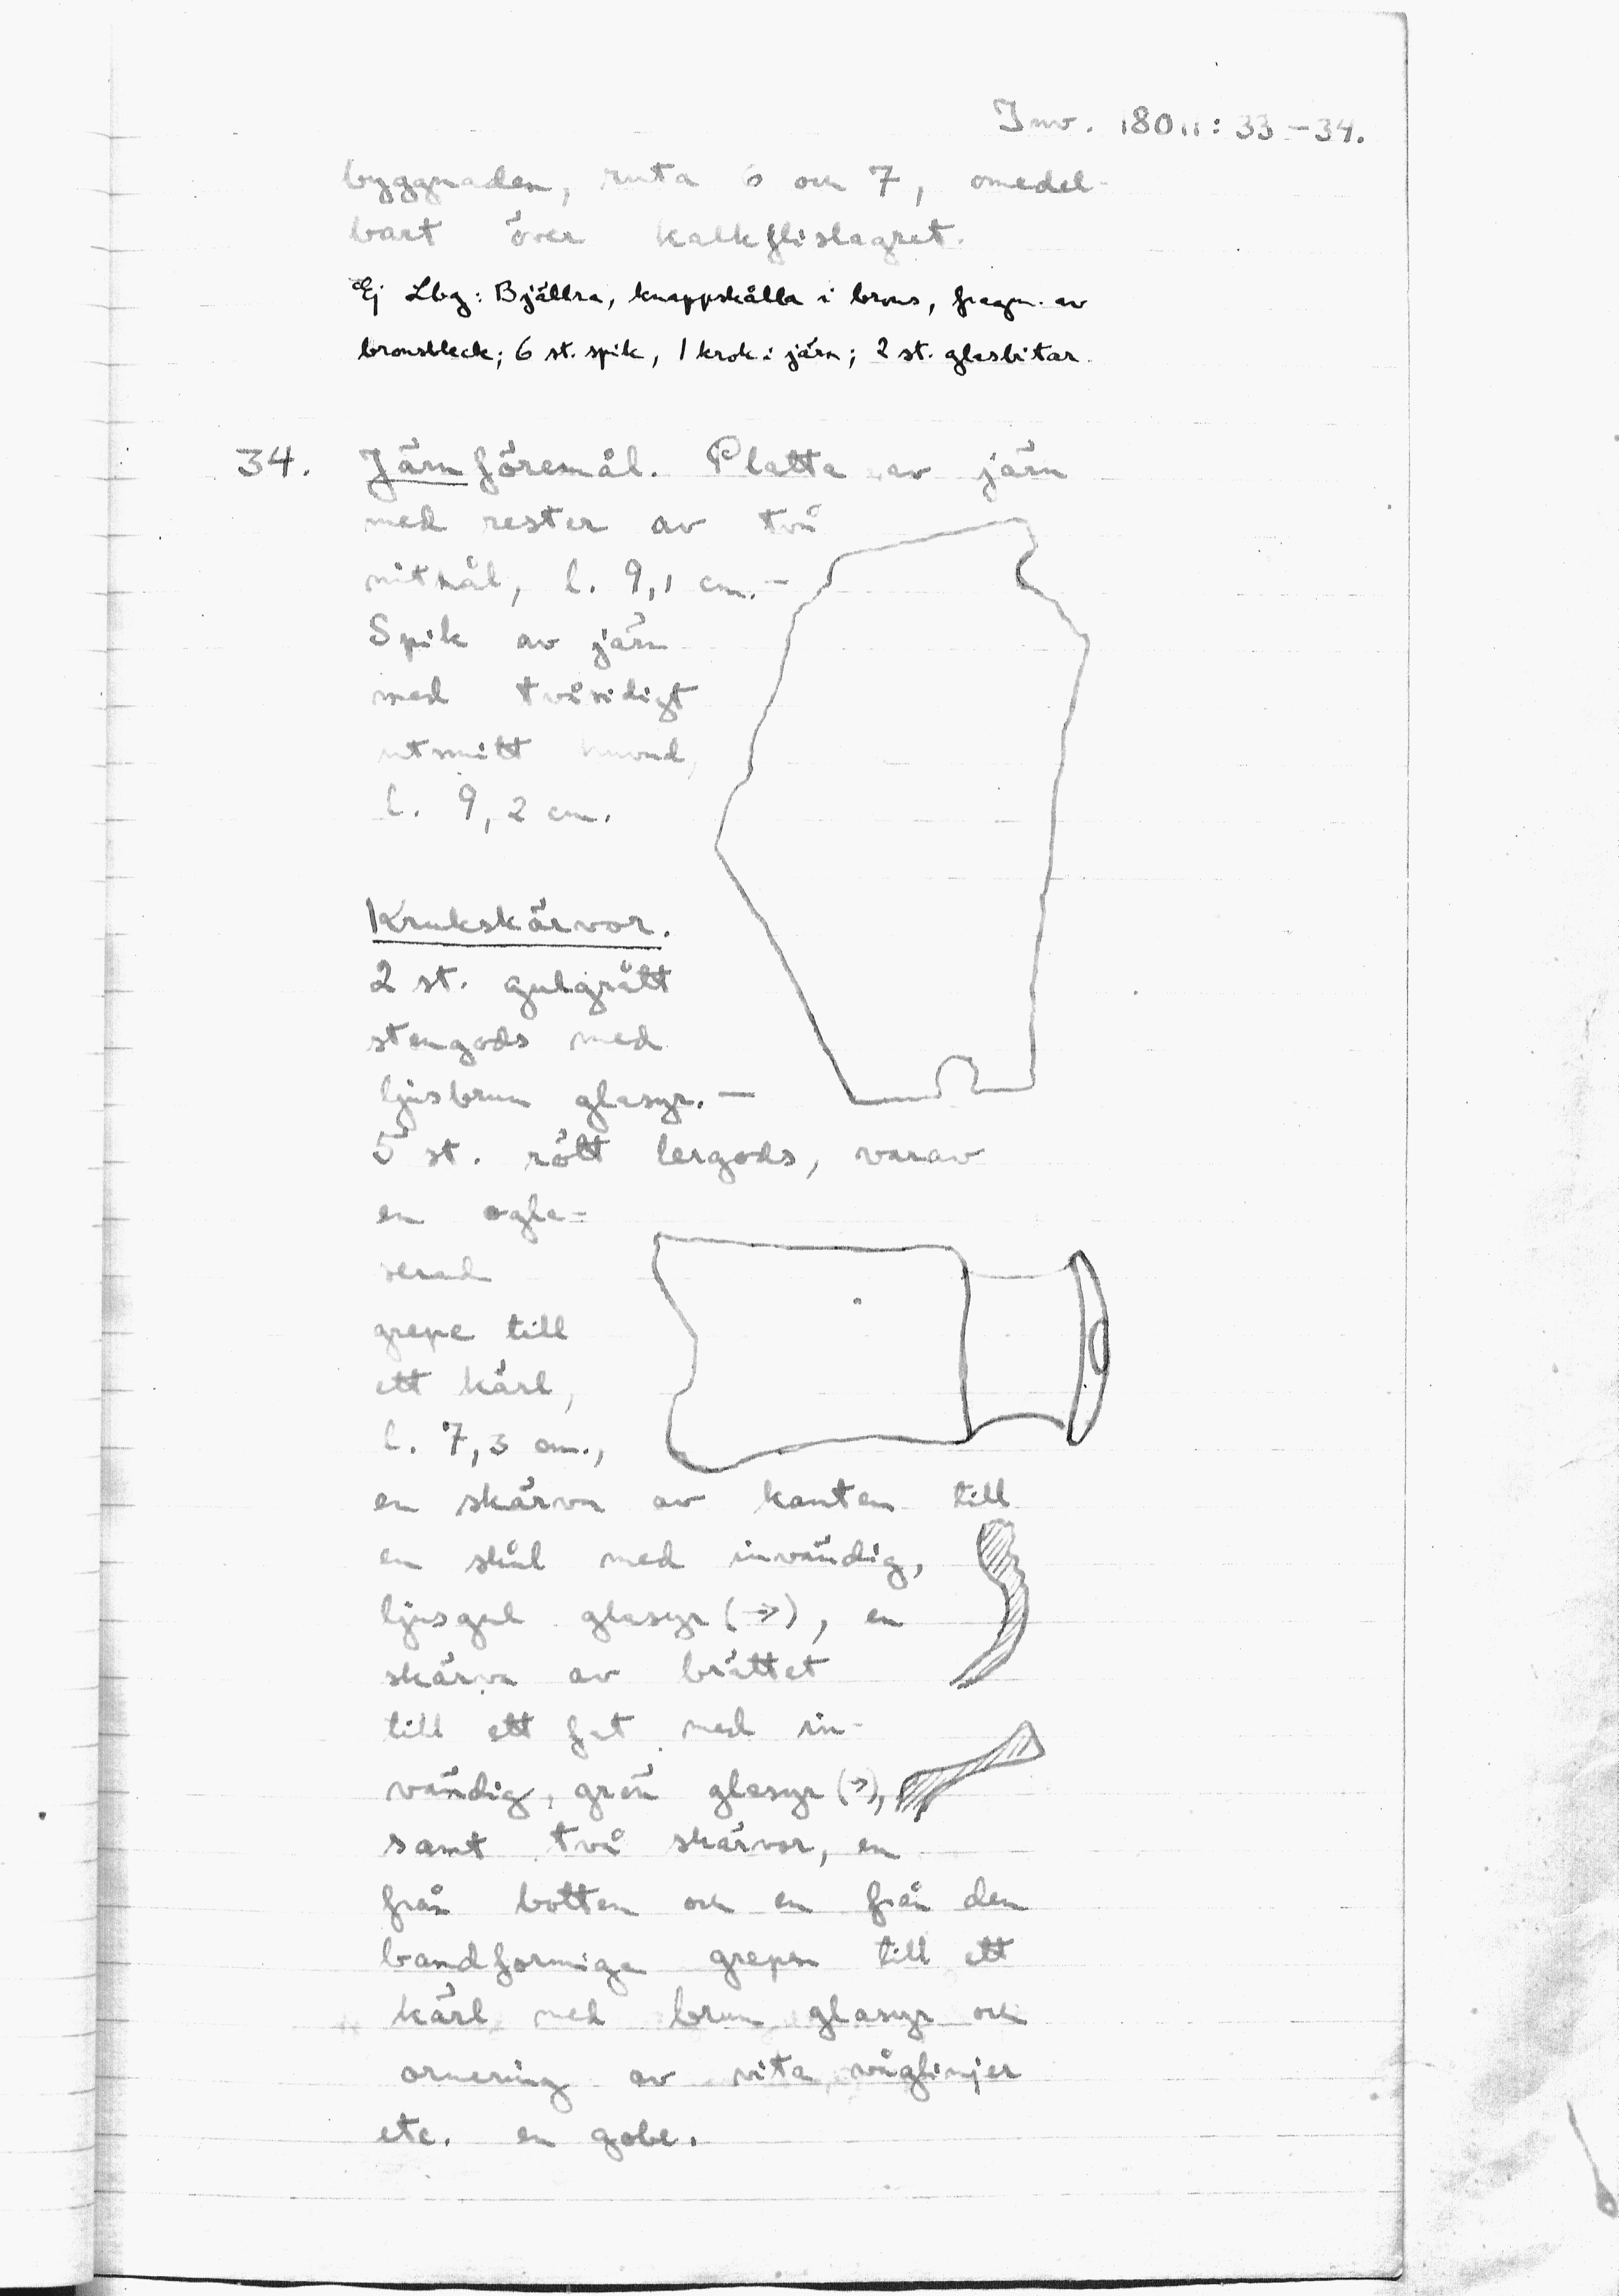 Inv. 18011: 33-34.
byggnaden, ruta 6 och 7, omedel-
bart över kalkflislagret.
Ej Lbg: Bjällra, knappskålla i brons, fragm. av
bronsbleck; 6 st. spik, 1 krok i järn; 2 st. glasbitar.
34. Järnföremål. Platta av järn
med rester av två
nithål, l. 9,1 cm. —
Spik av järn
med tvåsidigt
utsmitt huvud,
l. 9,2 cm.
Krukskärvor.
2 st. gulgrått
stengods med
ljusbrun glasyr. —
5 st. rött lergods, varav
en ogla=
serad
grepe till
ett kärl,
l. 7,3 cm.,
en skärva av kanten till
en skål med invändig,
ljusgul glasyr (→), en
skärva av brättet
till ett fat med in-
vändig, grön glasyr (→),
samt två skärvor, en
från botten och en från den
bandformiga grepen till ett
kärl med brun glasyr och
ornering av vita våglinjer
etc. en gobe.